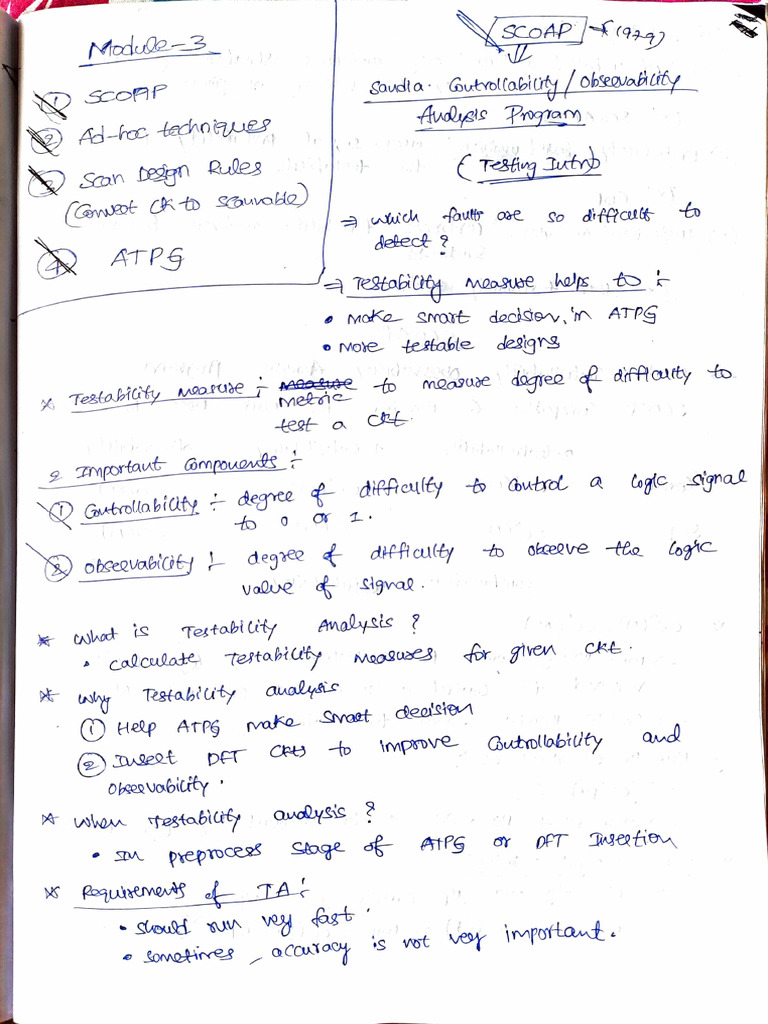 Module-3
① SCOAP
② Ad-hoc techniques
③ Scan Design Rules
(Convert ckt to scannable)
④ ATPG
SCOAP → (1979)
⇓
Sandia Controllability / Observability
Analysis Program
(Testing Intro)
⇒ which faults are so difficult to
detect?
⇒ Testability measure helps to :-
• Make smart decision, in ATPG
• More testable designs
* Testability measure :- measure to measure degree of difficulty to
metric
test a ckt.
2 Important Components :-
① Controllability :- degree of difficulty to control a logic signal
to 0 or 1.
② Observability :- degree of difficulty to observe the logic
value of signal.
* What is Testability Analysis?
• calculate Testability measures for given ckt.
* Why Testability analysis
① Help ATPG make smart decision
② Insert DFT ckts to improve controllability and
observability.
* When Testability analysis?
• In preprocess stage of ATPG or DFT Insertion
* Requirements of TA :-
• should run very fast.
• sometimes, accuracy is not very important.